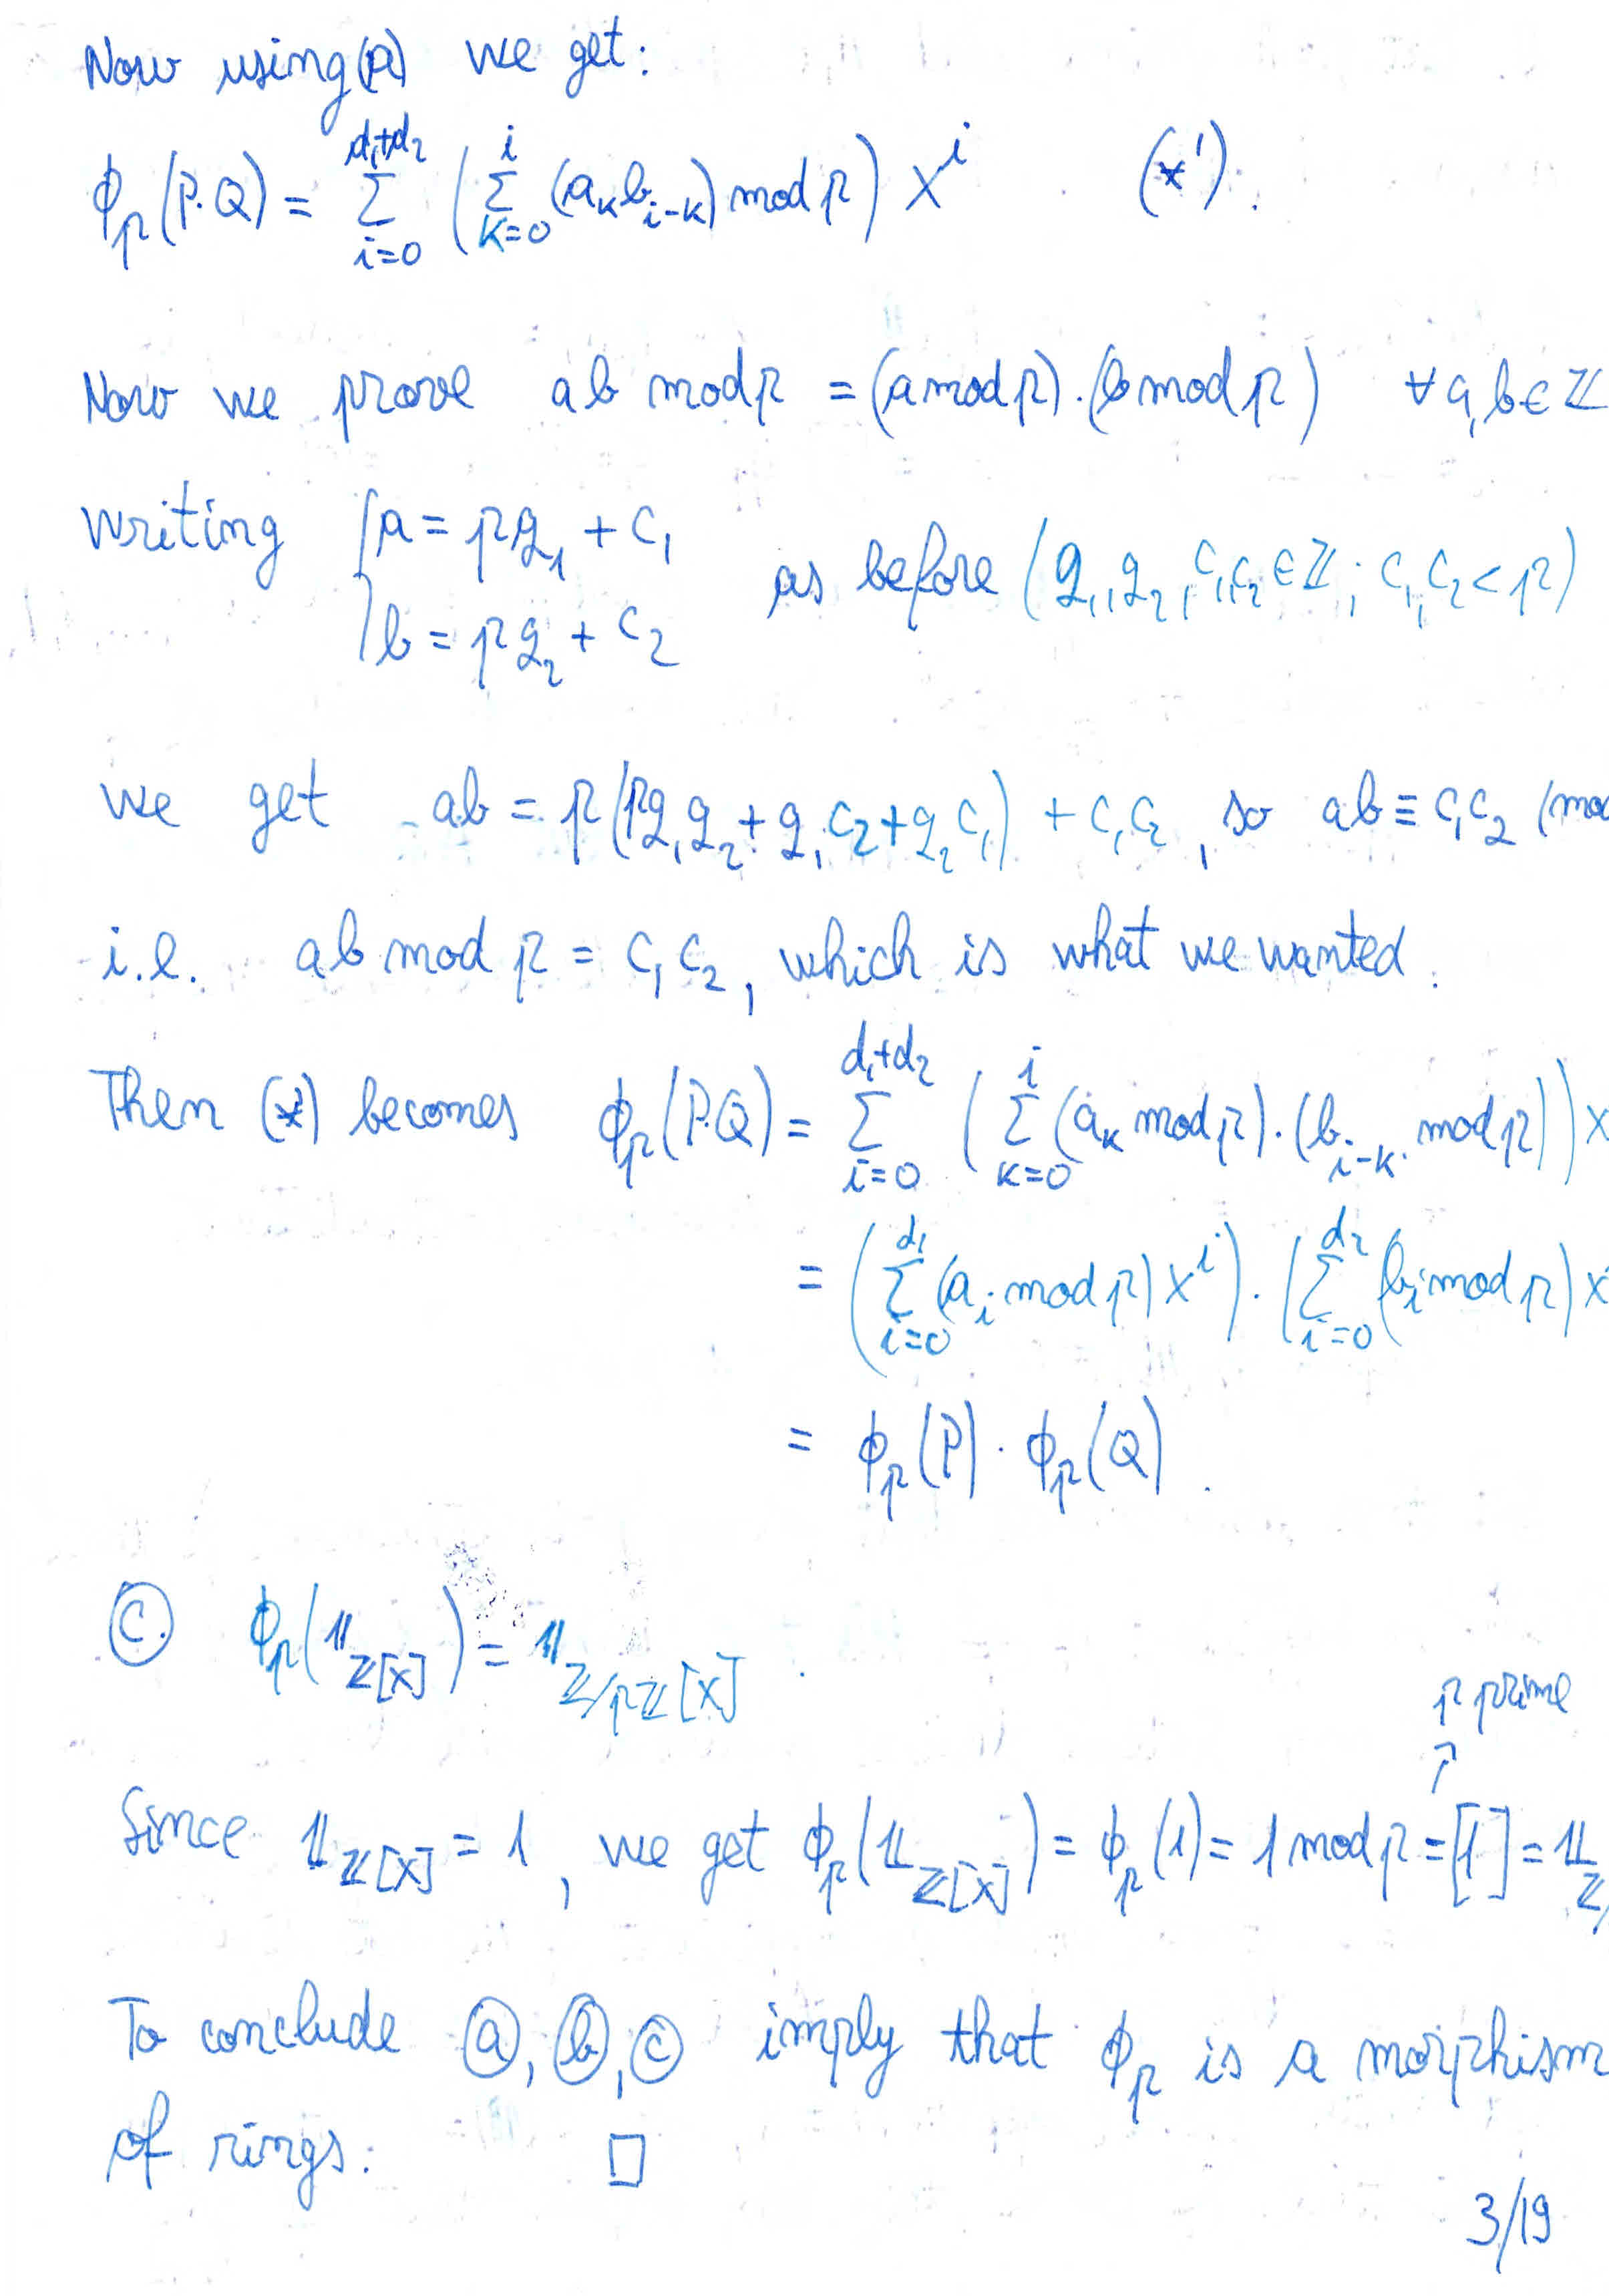 Now using (a) we get:
ϕ_p(P·Q) = ∑_{i=0}^{d₁+d₂} (∑_{k=0}^{i} (a_k b_{i-k}) mod p) X^i (*').
Now we prove ab mod p = (a mod p)·(b mod p) ∀ a, b ∈ ℤ
writing { a = pq₁ + c₁
b = pq₂ + c₂ as before (q₁, q₂, c₁, c₂ ∈ ℤ; c₁, c₂ < p)
we get ab = p(pq₁q₂ + q₁c₂ + q₂c₁) + c₁c₂, so ab ≡ c₁c₂ (mo
i.e. ab mod p = c₁c₂, which is what we wanted.
Then (*') becomes ϕ_p(P·Q) = ∑_{i=0}^{d₁+d₂} (∑_{k=0}^{i} (a_k mod p)·(b_{i-k} mod p)) X
= (∑_{i=0}^{d₁} (a_i mod p) X^i)·(∑_{i=0}^{d₂} (b_i mod p) X
= ϕ_p(P)·ϕ_p(Q).
ⓒ ϕ_p(𝟙_{ℤ[X]}) = 𝟙_{ℤ/pℤ[X]}.
p prime
↗
Since 𝟙_{ℤ[X]} = 1, we get ϕ_p(𝟙_{ℤ[X]}) = ϕ_p(1) = 1 mod p = [1] = 𝟙_{ℤ/
To conclude ⓐ, ⓑ, ⓒ imply that ϕ_p is a morphism
of rings. □
3/19